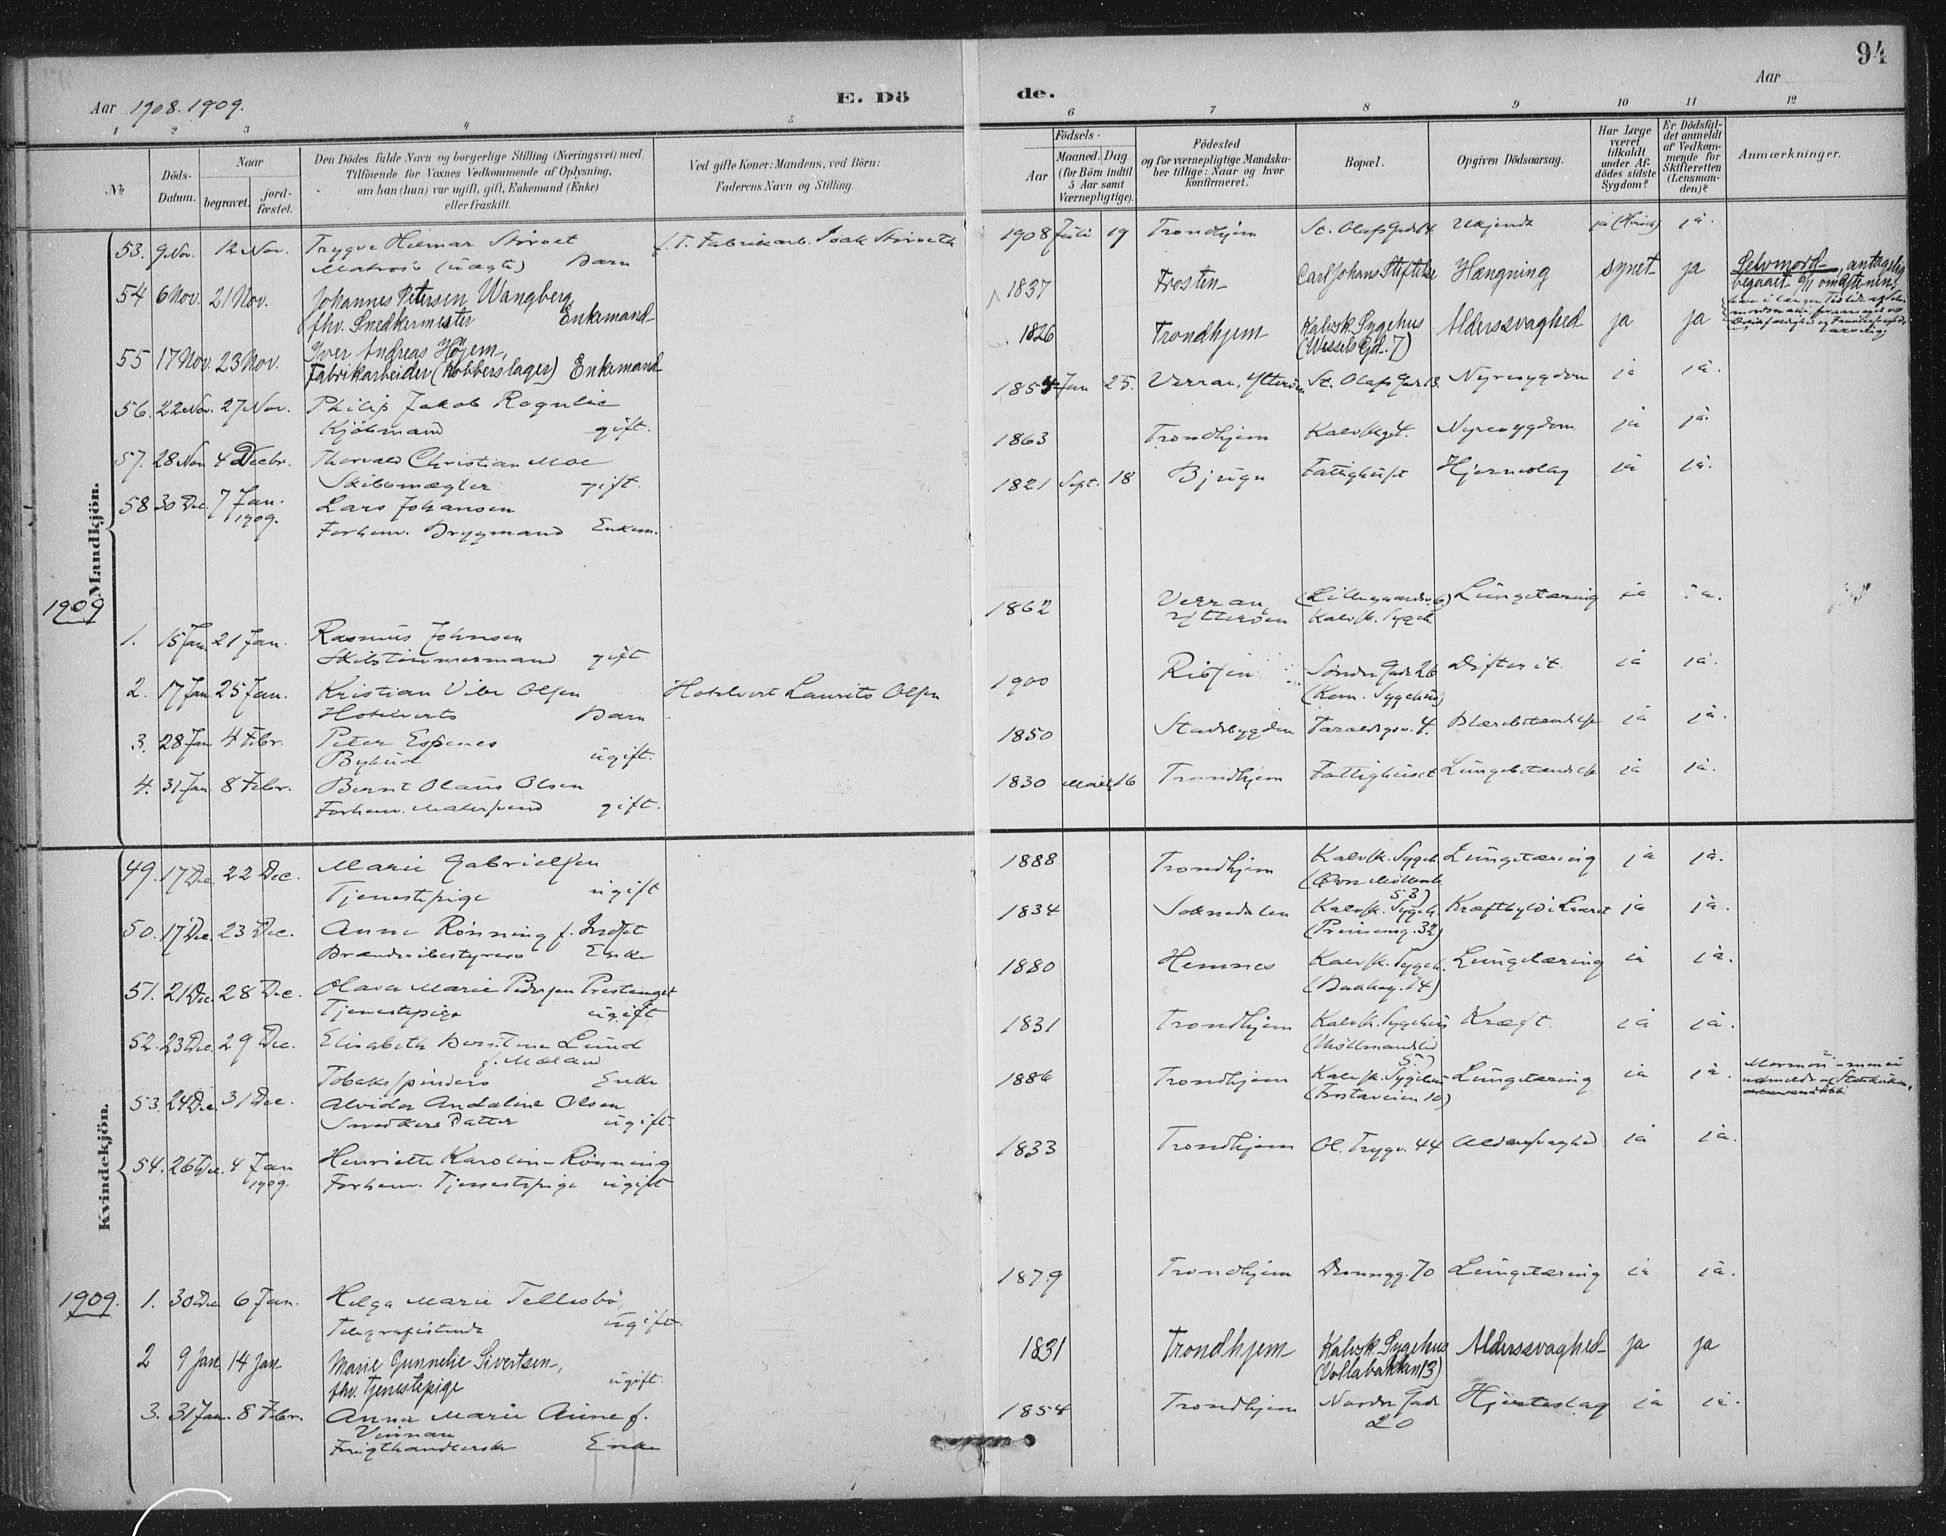 94
Aar 1908. 1909.
E. Dö
de.
Aar
1 2 3 4 5 6 7 8 9 10 11 12
No
Döds-
Datum.
Naar
begravet.
jord-
fæstet.
Den Dödes fulde Navn og borgerlige Stilling (Næringsvei) med
Tilföiende for Voxnes Vedkommende af Oplysning,
om han (hun) var ugift, gift, Enkemand (Enke)
eller fraskilt.
Ved gifte Koner: Mandens, ved Börn:
Faderens Navn og Stilling.
Födsels-
Aar
Maaned. Dag
(for Börn indtil
5 Aar samt
Værnepligtige).
Födested
og for værnepligtige Mandska-
ber tillige: Naar og hvor
konfirmeret.
Bopæl.
Opgiven Dödsaarsag.
Har Læge
været
tilkaldt
under Af-
dödes sidste
Sygdom?
Er Dödsfal-
det anmeldt
af Vedkom-
mende for
Skifteretten
(Lensman-
den)?
Anmærkninger.
Mandkjön.
53. 9 Nov. 12 Nov. Trygve Hilmar f. T. Fabrikarb. 1908 Juli 19 Trondhjem St. Olafs Gade 14 Ukjendt ja ja.
Barn
54 6 Nov. 21 Nov. Johannes Petersen Wangberg, 1837 Frosten Carl Johans Stiftelse Hængning synet ja Selvmord, antagelig
fhv. Snedkermester Enkemand begaaet 6/11 om Aftenen.
55 17 Nov. 23 Nov. Iver Andreas Höyem, 1826 Trondhjem Kalvsk. Sygehus Alderssvaghed ja ja
Fabrikarbeider (Kobberslager) Enkemand (Wessels Gd. 7)
56. 22 Nov. 27 Nov. Philip Jakob 1854 Jan 25. Verran, Ytterøen St. Olafs Gade 13. Nyresygdom ja ja.
Kjöbmand gift.
57. 28 Nov 4 Decbr. Thorvald Christian Moe 1863 Trondhjem Kalvskgt. Nyresygdom ja ja.
Skibsmægler gift.
58 30 Dec. 7 Jan. Lars Johansen 1821 Sept. 18 Bjugn Fattighuset Hjerneslag ja ja.
1909.
Forhenv. Brygmand Enkem.
1909
1. 15 Jan 21 Jan. Rasmus Johnsen 1862 Verran, Lungetæring ja ja.
Skibstømmermand gift Ytterøen Kalvsk. Sygeh.
2. 17 Jan 25 Jan. Kristian Vibe Olsen Hotelvert Laurits Olsen 1900 Søndre Gade 26 Difterit. ja ja.
Hotelverts Barn (Kom. Sygehus)
3. 28 Jan 4 Febr. Peter Espenes 1850 Stadsbygden 4. Blærebetændelse ja ja.
Bybud ugift.
4. 31 Jan 8 Febr. Bernt Olaus Olsen 1830 Marts 16 Trondhjem Fattighuset Lungebetændelse ja ja.
Forhenv. gift.
Kvindekjön.
49. 17 Dec. 22 Dec. Marie Gabrielsen 1888 Trondhjem Kalvsk. Sygeh. Lungetæring ja ja.
Tjenestepige ugift (Övre Möllenb. 53)
50. 17 Dec. 23 Dec. Anne Rönning f. Indset 1834 Soknedalen Kalvsk. Sygeh. Kræftbyld i Laaret ja ja.
Enke (Prinsensg. 32)
51. 21 Dec. 28 Dec. Olava Marie Pedersen 1880 Hemnes Kalvsk. Sygeh. Lungetæring ja ja.
Tjenestepige ugift (Bakkeg. 14)
52. 23 Dec. 29 Dec. Elisabeth Lund 1831 Trondhjem Kalvsk. Sygehus Kræft. ja ja.
f. Mæland
Enke
53. 24 Dec. 31 Dec. Alvida Andaline Olsen 1886 Trondhjem Kalvsk. Sygehus Lungetæring ja ja. Mormon
Snedkers Datter ugift. (Frostaveien 10) udmeldt af Statskirken,
54. 26 Dec. 4 Jan Henriette Karoline Rönning 1833 Trondhjem Ol. Trygv. 44 Alderssvaghed ja ja.
1909.
Forhenv. Tjenestepige ugift
1909.
1. 30 Dec 6 Jan. Helga Marie Tellesbö 1879 Trondhjem Dronngg. 70 Lungetæring ja ja.
Telegrafistinde ugift.
2 9 Jan 14 Jan Marie Gunnelie Sivertsen, 1831 Trondhjem Kalvsk. Sygehus Alderssvaghed ja ja
fhv. Tjenestepige ugift. (Vollabakken 13)
3. 31 Jan. 8 Febr. Anna Marie Aune f. 1854 Trondhjem Nordre Gade Hjerteslag ja ja.
Vinnan 20
Frugthandlerske Enke